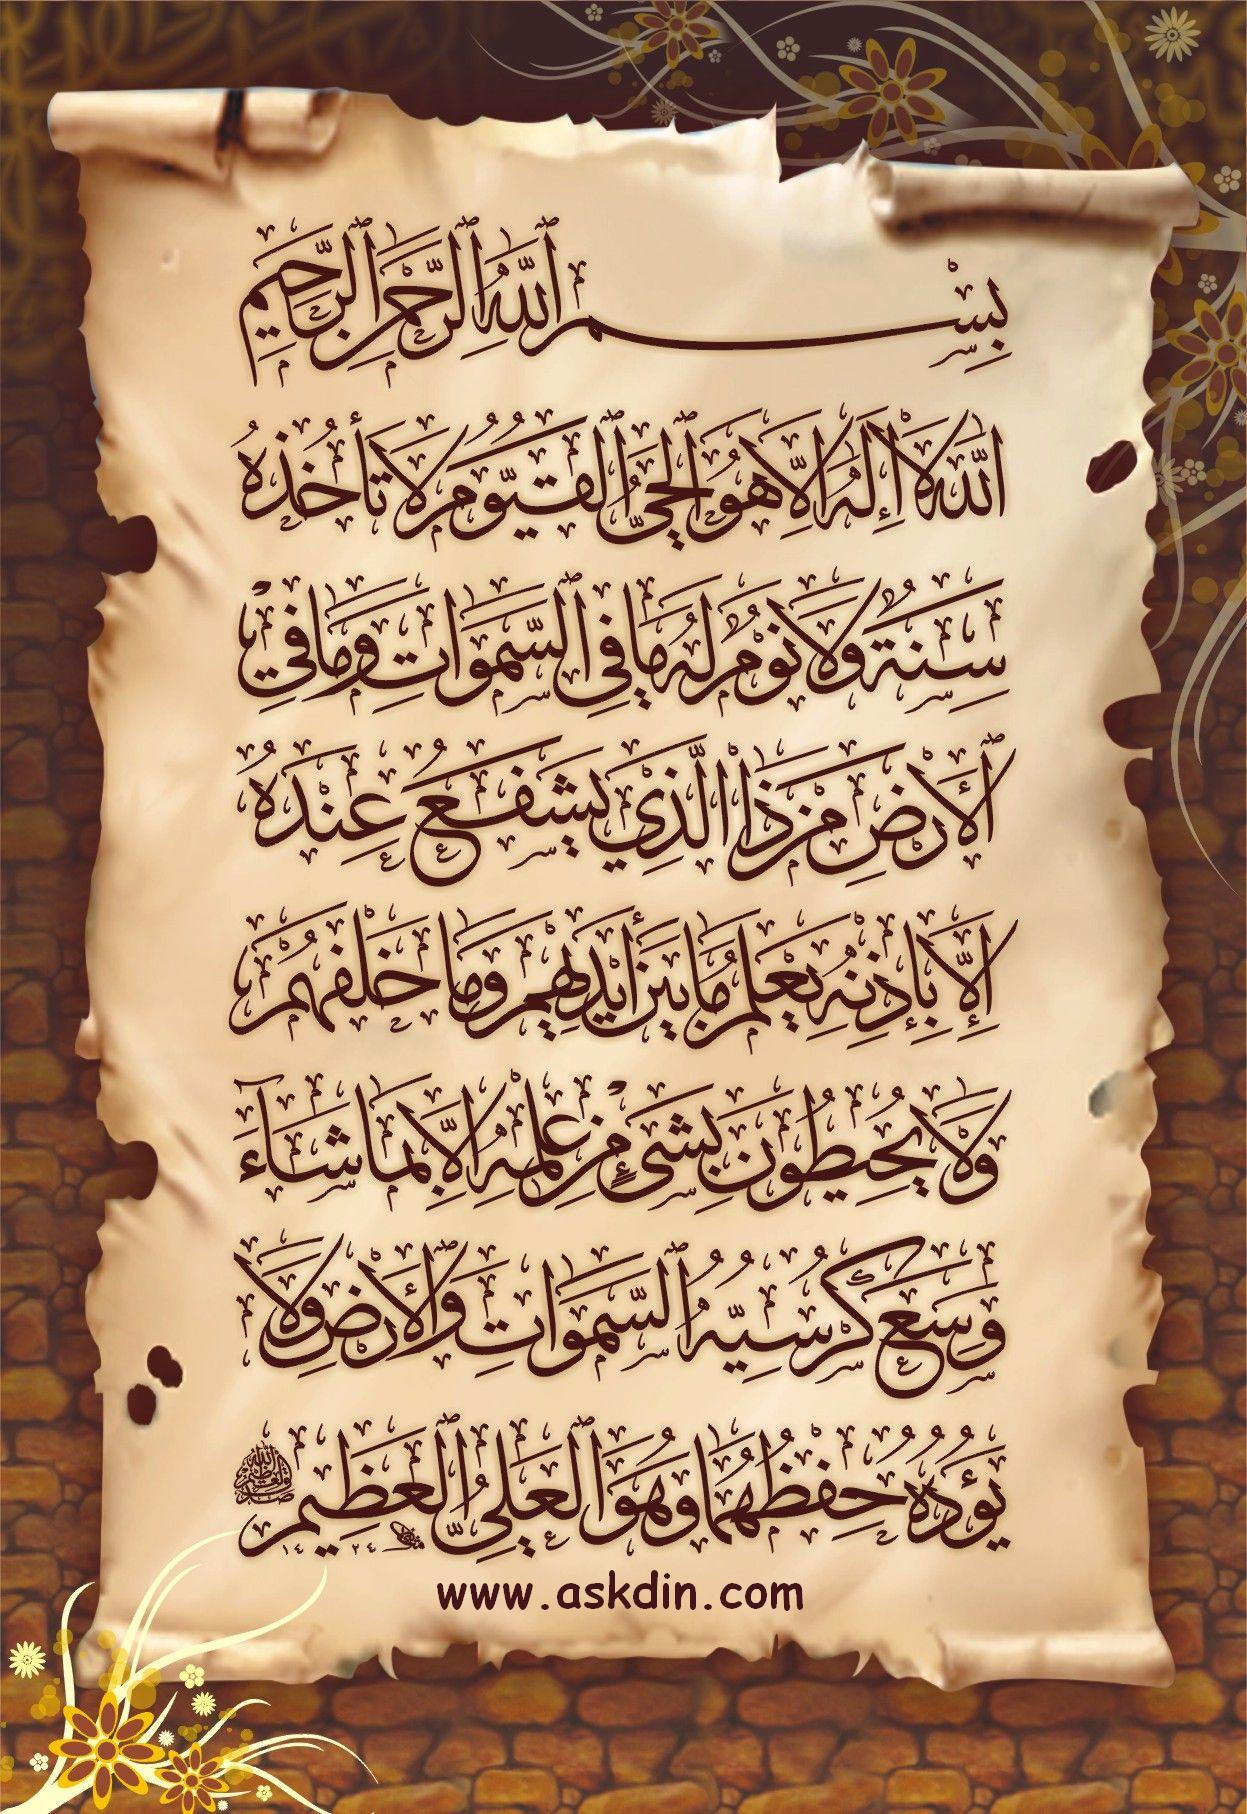 بِسْمِ ٱللَّهِ ٱلرَّحْمَٰنِ ٱلرَّحِيمِ
اَللّٰهُ لَا إِلٰهَ اِلَّا هُوَ ٱلْحَيُّ ٱلْقَيُّومُ لَا تَأْخُذُهُ
سِنَةٌ وَلَا نَوْمٌ لَهُ مَا فِي ٱلسَّمٰوَاتِ وَمَا فِي
ٱلْأَرْضِ مَنْ ذَا الَّذِي يَشْفَعُ عِنْدَهُ
اِلَّا بِإِذْنِهِ يَعْلَمُ مَا بَيْنَ أَيْدِيهِمْ وَمَا خَلْفَهُمْ
وَلَا يُحِيطُونَ بِشَيْءٍ مِنْ عِلْمِهِ اِلَّا بِمَا شَآءَ
وَسِعَ كُرْسِيُّهُ ٱلسَّمٰوَاتِ وَٱلْأَرْضَ وَلَا
يَؤُدُهُ حِفْظُهُمَا وَهُوَ ٱلْعَلِيُّ ٱلْعَظِيمُ
صدق الله العظيم
١٤٢٤
www.askdin.com